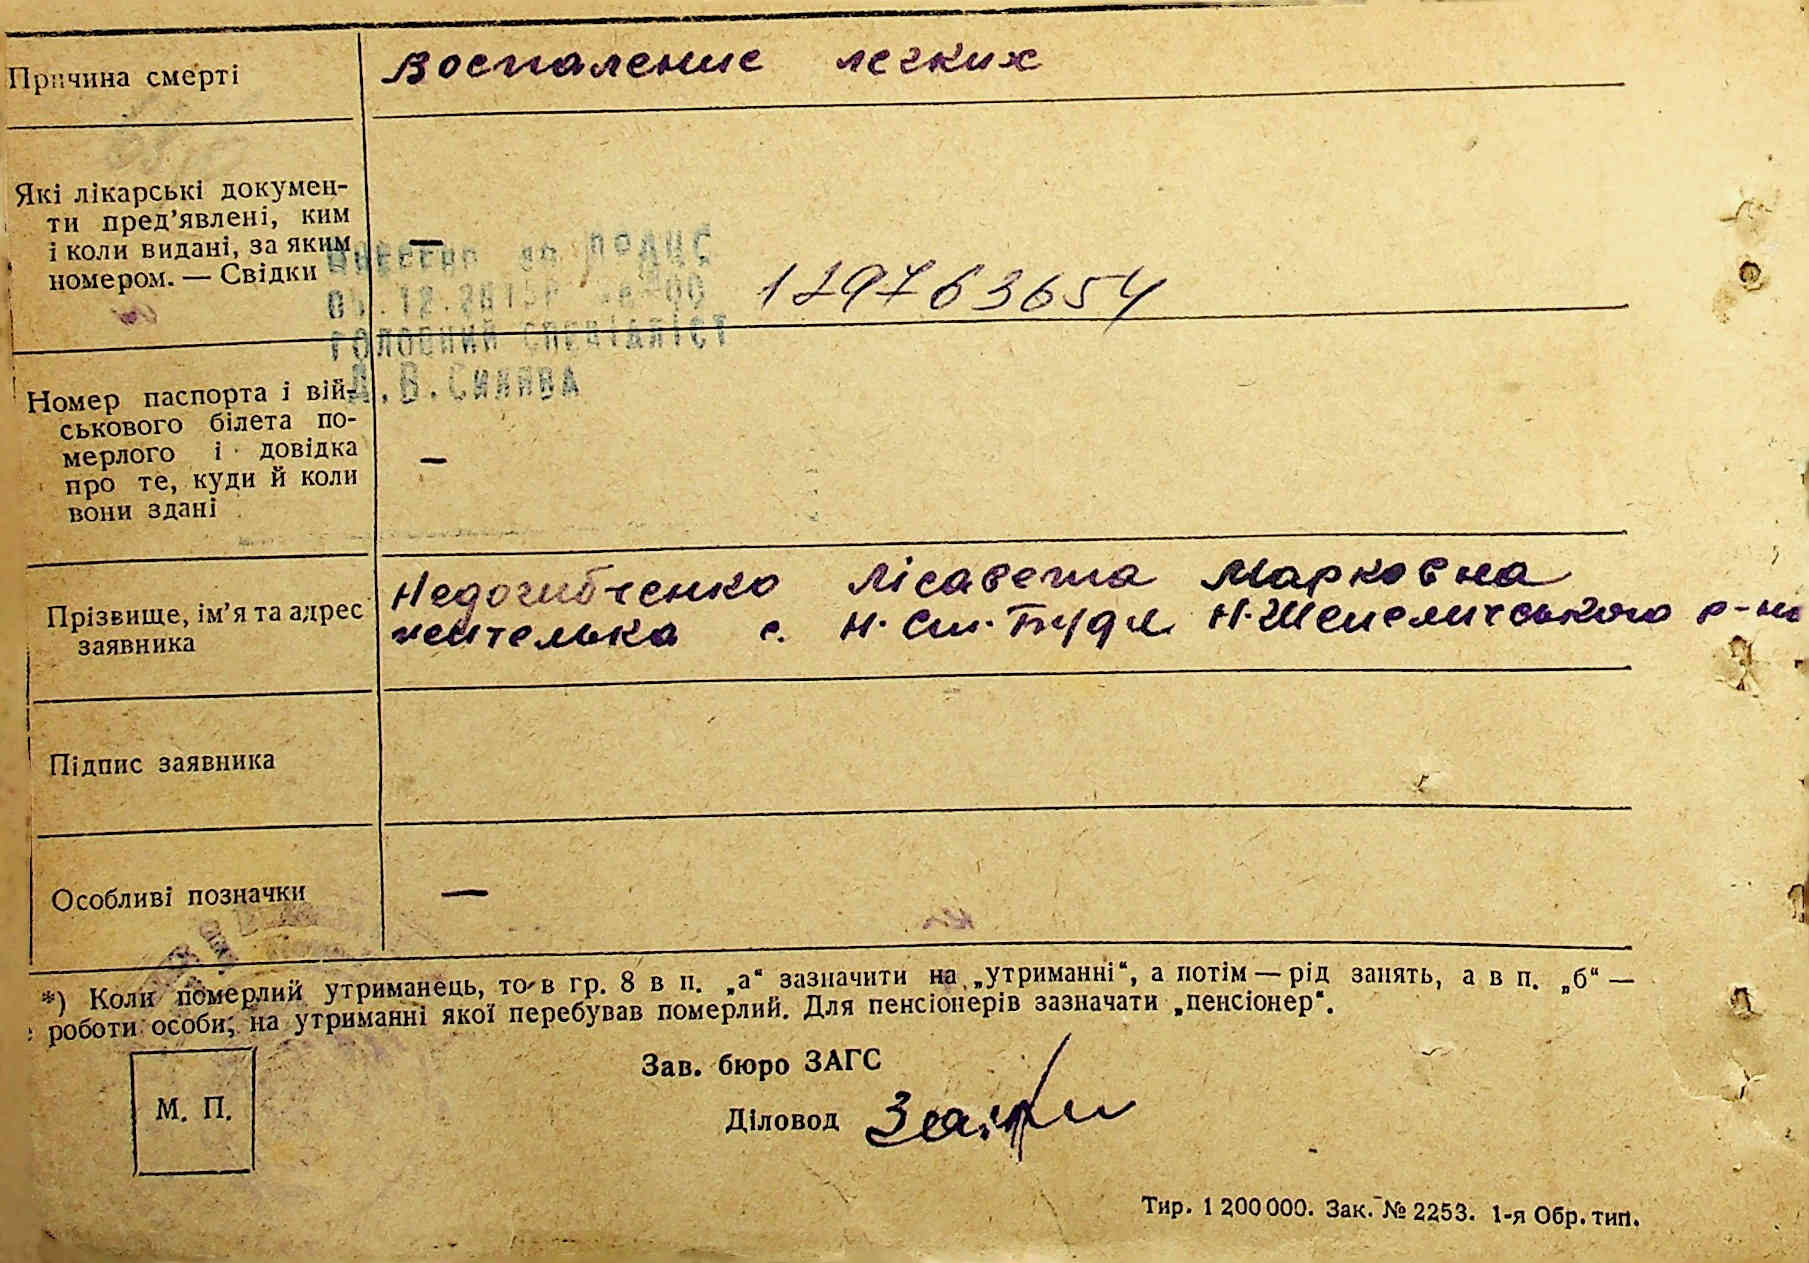 Причина смерті
Воспаление легких
Які лікарські докумен-
ти пред’явлені, ким
і коли видані, за яким
номером. — Свідки
—
Внесено до
головний спеціаліст
129763654
Номер паспорта і вій-
ськового білета по-
мерлого і довідка
про те, куди й коли
вони здані
—
Прізвище, ім’я та адрес
заявника
Недогибченко Лісавета Марковна
жителька с. Н. Ст. Буда Н. Шепелического р-на
Підпис заявника
Особливі позначки
—
*) Коли померлий утриманець, то в гр. 8 в п. „а“ зазначити на „утриманні“, а потім — рід занять, а в п. „б“ —
роботи особи, на утриманні якої перебував померлий. Для пенсіонерів зазначати „пенсіонер“.
Зав. бюро ЗАГС
М. П.
Діловод
Тир. 1 200 000. Зак. № 2253. 1-я Обр. тип.